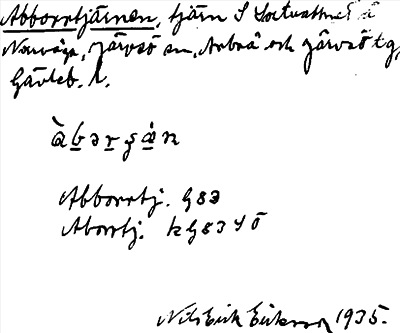 Abborrtjärnen, tjärn S
Norväga, Järvsö sn, Arbrå och Järvsö tg,
Gävleb. l.
àbərʒæ̀n
Abborrtj. G83
Aborrtj. kG83 40
Nils Erik Eriksson 1935.